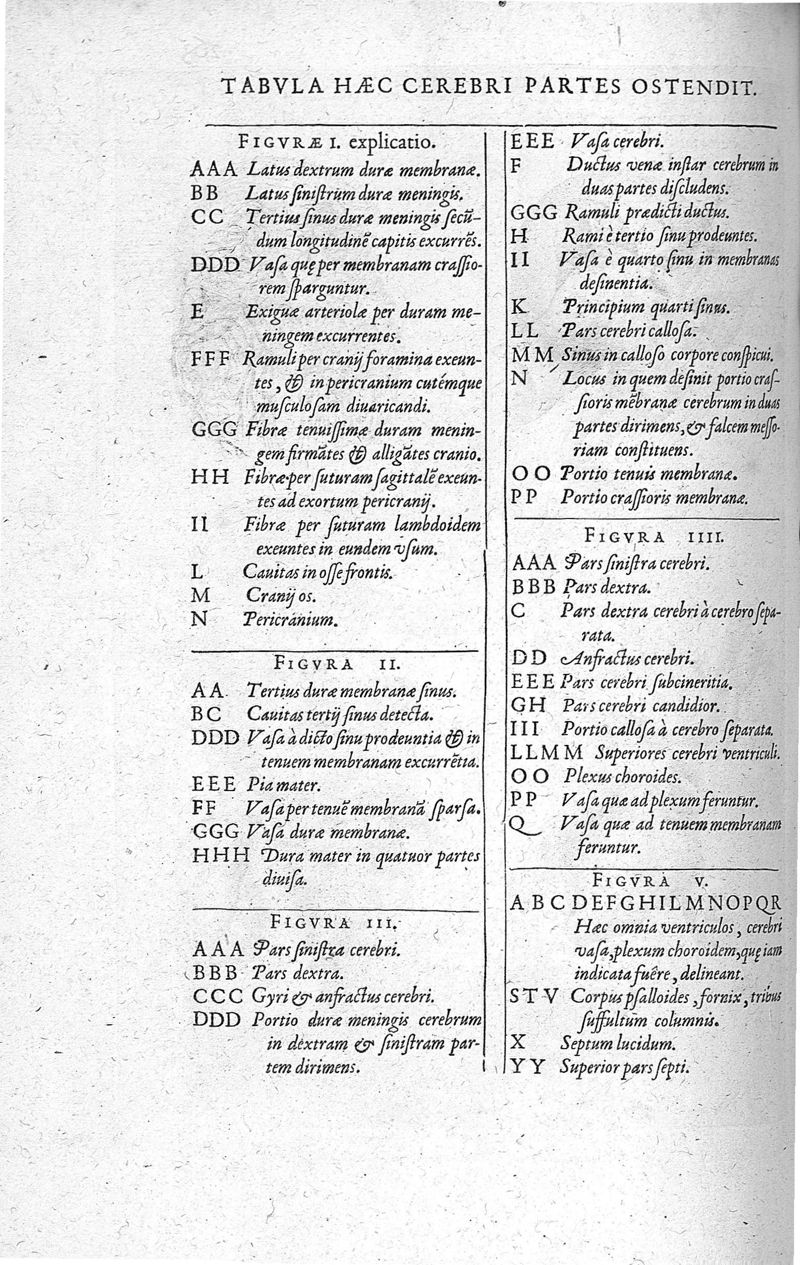 TABVLA HÆC CEREBRI PARTES OSTENDIT.
FIGVRÆ I. explicatio.
AAA Latus dextrum duræ membranæ.
BB Latus ſiniſtrum duræ meningis.
CC Tertius ſinus duræ meningis ſecũ-
dum longitudinẽ capitis excurrẽs.
DDD Vaſa quę per membranam craſſio-
rem ſparguntur.
E Exiguæ arteriolæ per duram me-
ningem excurrentes.
FFF Ramuli per cranij foramina exeun-
tes, & in pericranium cutémque
muſculoſam diuaricandi.
GGG Fibræ tenuiſſimæ duram menin-
gem firmãtes & alligãtes cranio.
HH Fibræ per ſuturam ſagittalẽ exeun-
tes ad exortum pericranij.
II Fibræ per ſuturam lambdoidem
exeuntes in eundem vſum.
L Cauitas in oſſe frontis.
M Cranij os.
N Pericranium.
FIGVRA II.
AA Tertius duræ membranæ ſinus.
BC Cauitas tertij ſinus detecta.
DDD Vaſa à dicto ſinu prodeuntia & in
tenuem membranam excurrẽtia.
EEE Pia mater.
FF Vaſa per tenuẽ membranã ſparſa.
GGG Vaſa duræ membranæ.
HHH Dura mater in quatuor partes
diuiſa.
FIGVRA III.
AAA Pars ſiniſtra cerebri.
BBB Pars dextra.
CCC Gyri & anfractus cerebri.
DDD Portio duræ meningis cerebrum
in dextram & ſiniſtram par-
tem dirimens.
EEE Vaſa cerebri.
F Ductus venæ inſtar cerebrum in
duas partes diſcludens.
GGG Ramuli prædicti ductus.
H Rami è tertio ſinu prodeuntes.
II Vaſa è quarto ſinu in membranas
deſinentia.
K Principium quarti ſinus.
LL Pars cerebri calloſa.
MM Sinus in calloſo corpore conſpicui.
N Locus in quem deſinit portio craſ-
ſioris mẽbranæ cerebrum in duas
partes dirimens, & falcem meſſo-
riam conſtituens.
OO Portio tenuis membranæ.
PP Portio craſſioris membranæ.
FIGVRA IIII.
AAA Pars ſiniſtra cerebri.
BBB Pars dextra.
C Pars dextra cerebri à cerebro ſepa-
rata.
DD Anfractus cerebri.
EEE Pars cerebri ſubcineritia.
GH Pars cerebri candidior.
III Portio calloſa à cerebro ſeparata.
LLMM Superiores cerebri ventriculi.
OO Plexus choroides.
PP Vaſa quæ ad plexum feruntur.
Q Vaſa quæ ad tenuem membranam
feruntur.
FIGVRA V.
ABCDEFGHILMNOPQR
Hæc omnia ventriculos, cerebri
vaſa, plexum choroidem, quę iam
indicata fuêre, delineant.
STV Corpus pſalloides, fornix, tribus
ſuffultum columnis.
X Septum lucidum.
YY Superior pars ſepti.